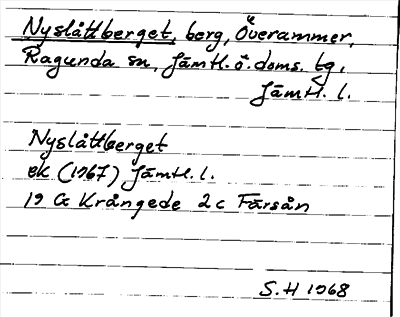 Nyslåttberget, berg, Överammer,
Ragunda sn, Jämtl. ö. doms. tg,
Jämtl. l.
Nyslåttberget
ek (1967) Jämtl. l.
19 G Krångede 2 c Färsån
S.H 1968